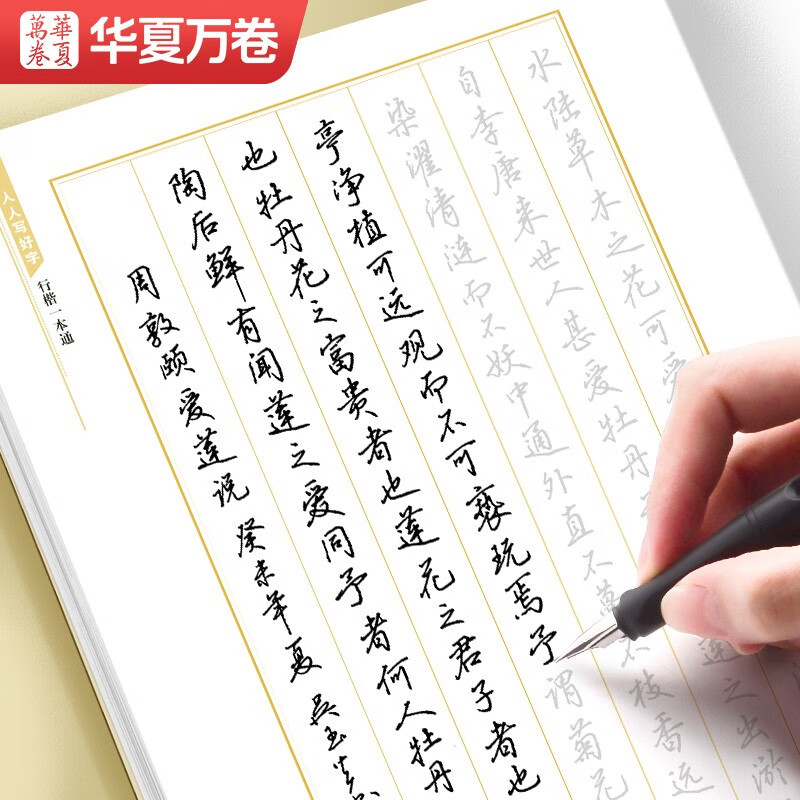 華夏
萬卷
华夏万卷
水陆草木之花可爱
自李唐来世人甚爱牡丹 莲之出淤
染濯清涟而不妖中通外直不蔓不枝香远
亭净植可远观而不可亵玩焉予谓菊花
也牡丹花之富贵者也莲花之君子者也
陶后鲜有闻莲之爱同予者何人牡丹
周敦颐爱莲说 癸未年夏 吴玉生
人人写好字
行楷一本通